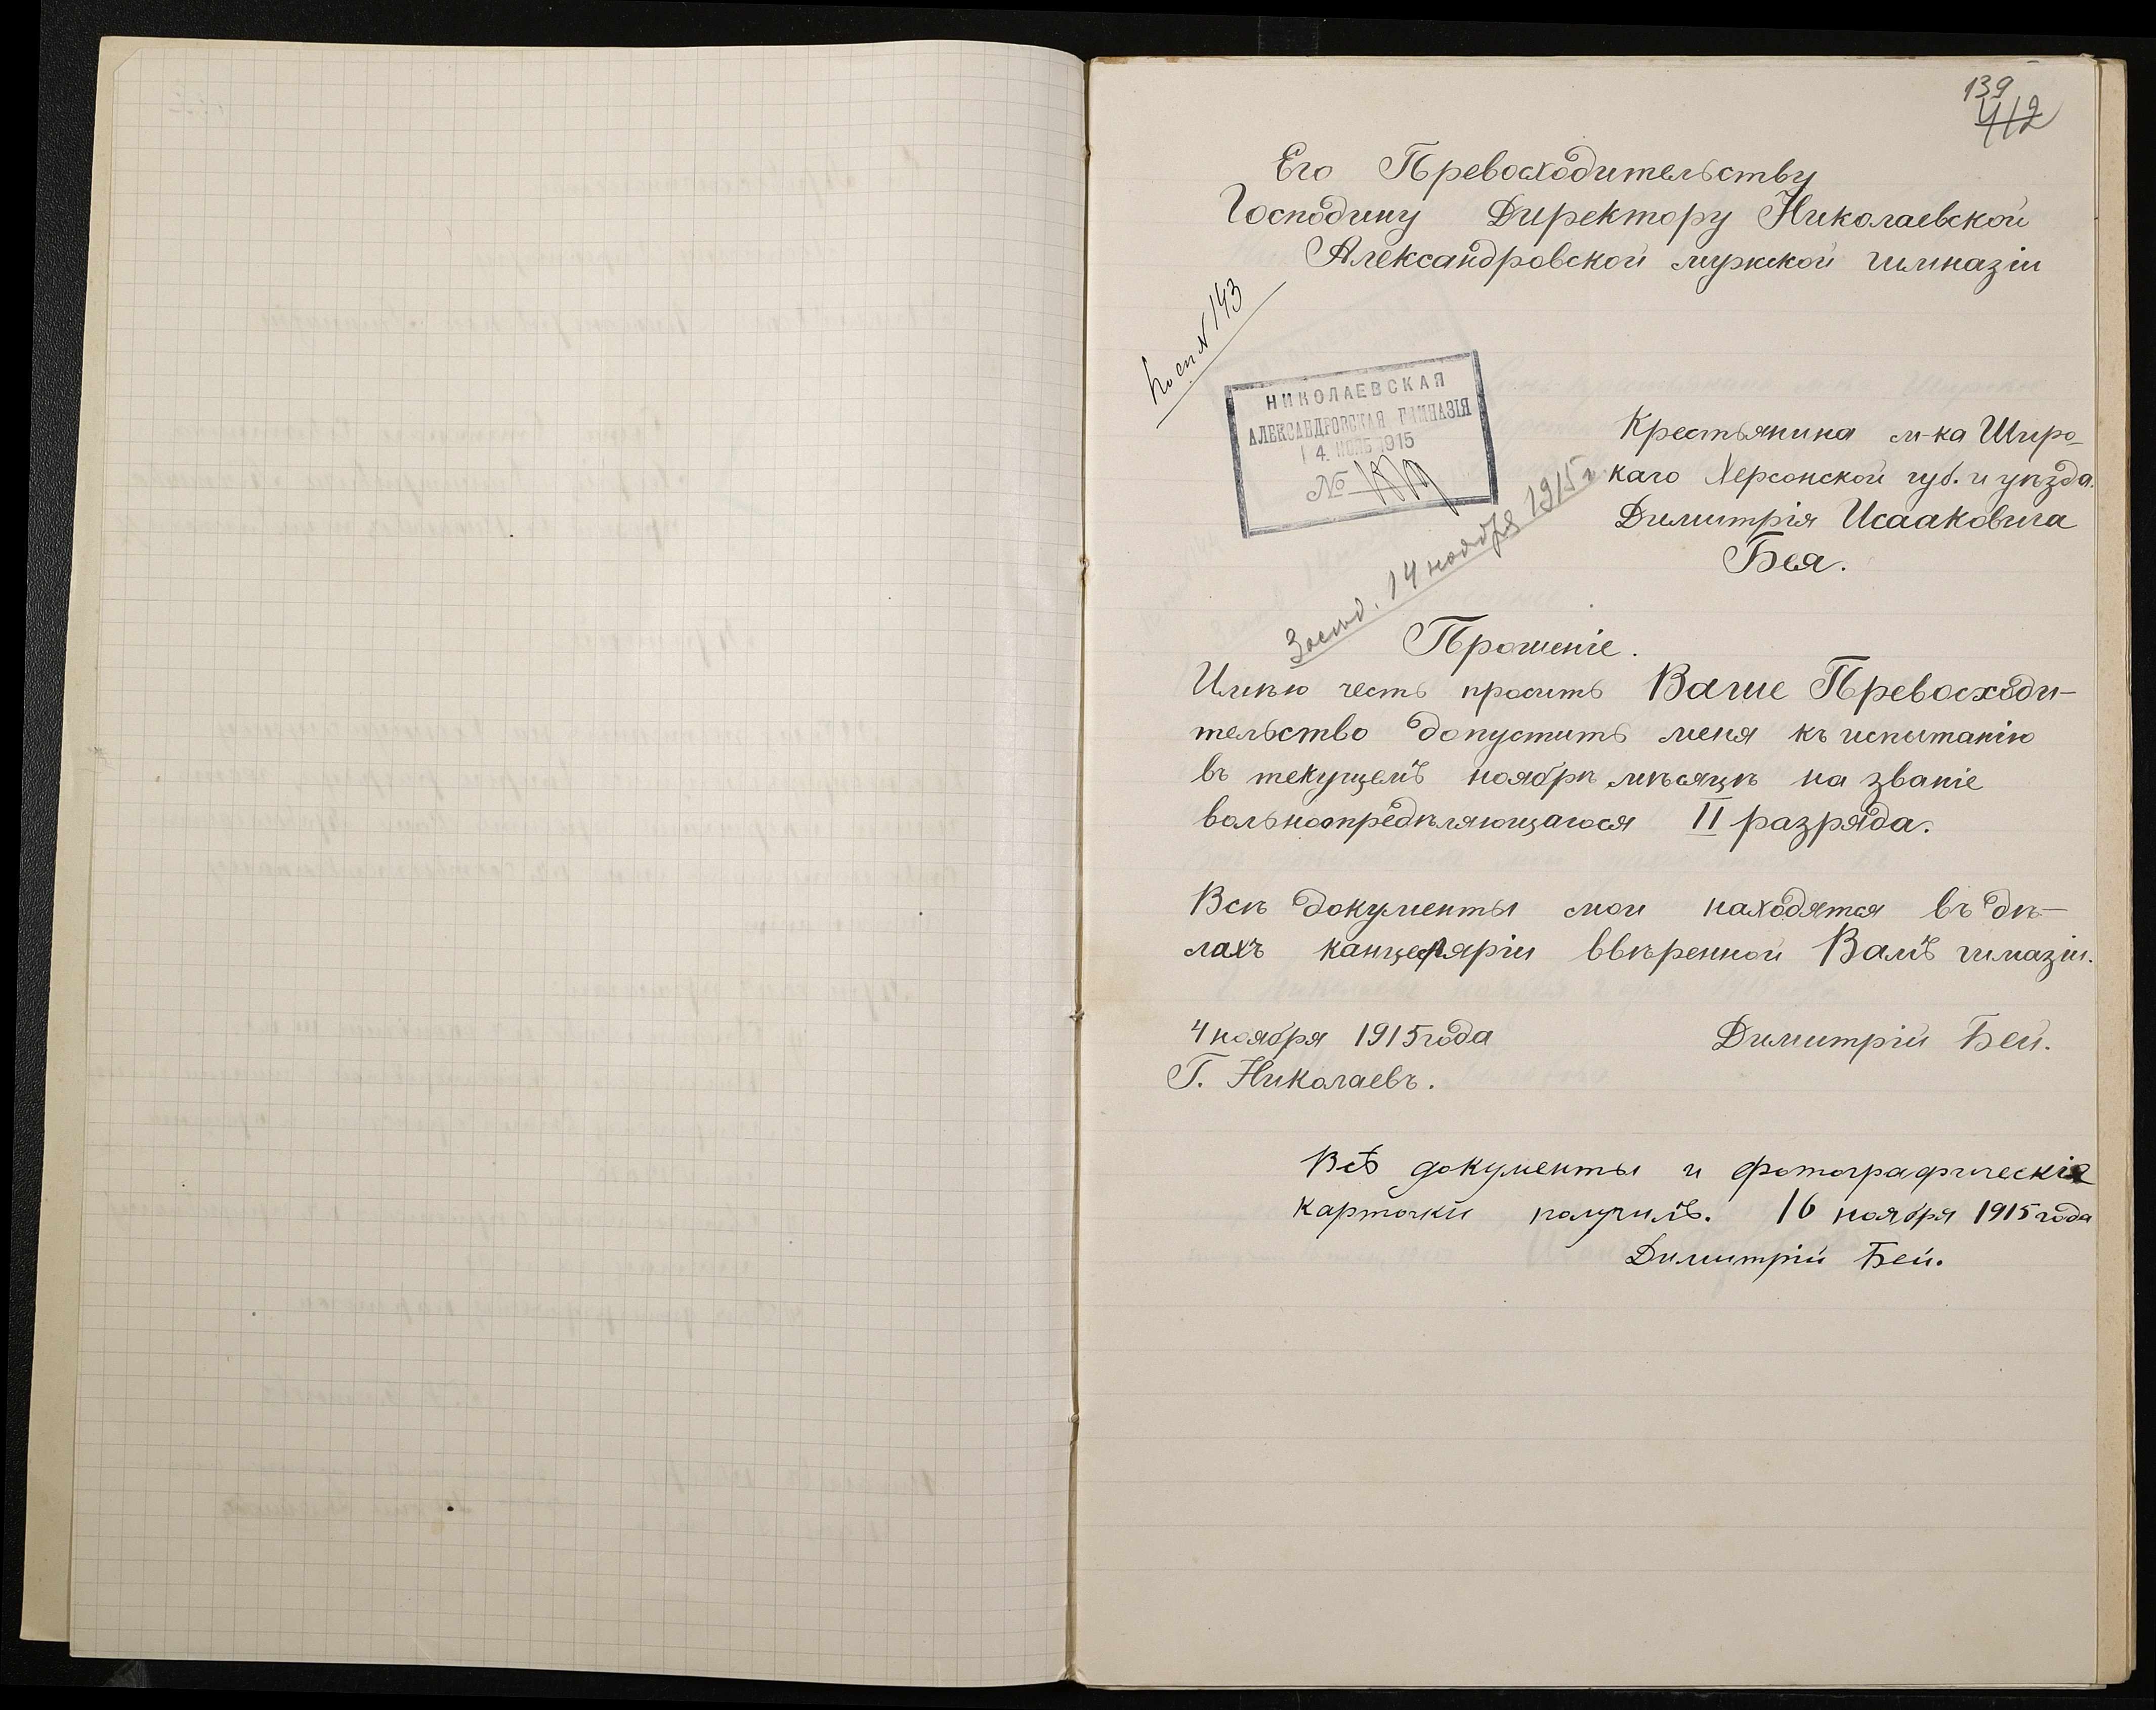 139
412
Его Превосходительству
Господину Директору Николаевской
Александровской мужской гимназіи
По сп. № 143
НИКОЛАЕВСКАЯ
АЛЕКСАНДРОВСКАЯ ГИМНАЗІЯ
4 НОЯБ 1915
№
Крестьянина м-ка Широ-
каго Херсонской губ. и уѣзда.
Димитрія Исааковича
Бея.
Засѣд. 14 ноября 1915 г.
Прошеніе.
Имѣю честь просить Ваше Превосходи-
тельство допустить меня къ испытанію
въ текущемъ ноябрѣ мѣсяцѣ на званіе
вольноопредѣляющагося II разряда.
Всѣ документы мои находятся въ дѣ-
лахъ канцеляріи ввѣренной Вамъ гимазіи.
4 ноября 1915 года Димитрій Бей.
Г. Николаевъ.
Всѣ документы и фотографическія
карточки получилъ. 16 ноября 1915 года
Димитрій Бей.